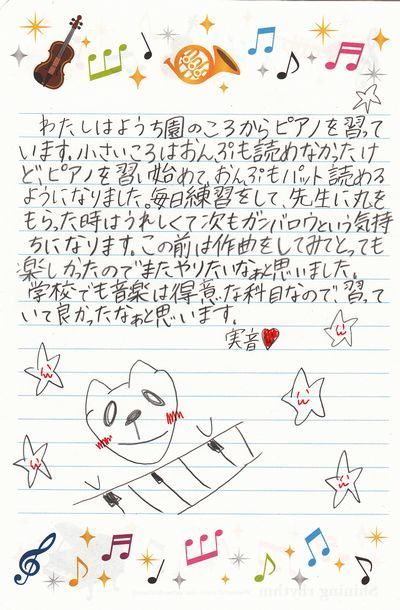 わたしはようち園のころからピアノを習って
います。小さいころはおんぷも読めなかったけ
ど、ピアノを習い始めて、おんぷもパット読める
ようになりました。毎日練習をして、先生に丸を
もらった時はうれしくて次もガンバロウという気持
ちになります。この前は作曲をしてみてとっても
楽しかったのでまたやりたいなぁと思いました。
学校でも音楽は得意な科目なので、習って
いて良かったなぁと思います。
実音